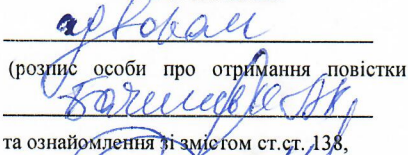 адвокат
(розпис особи про отримання повістки
та ознайомлення зі змістом ст.ст. 138,